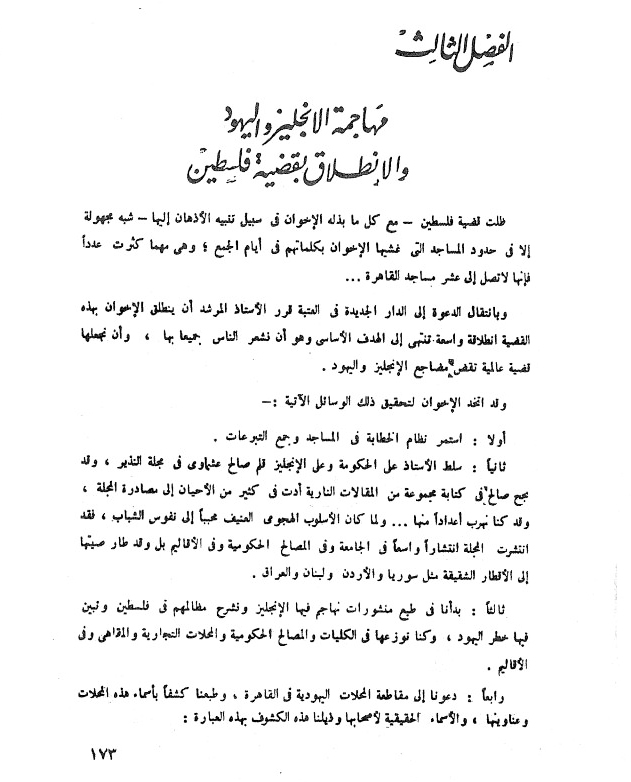 الفصل الثالث
مهاجمة الانجليز واليهود
والانطلاق بقضية فلسطين
ظلت قضية فلسطين – مع كل ما بذله الإخوان فى سبيل تنبيه الأذهان إليها – شبه مجهولة
إلا فى حدود المساجد التى غشيها الإخوان بكلماتهم فى أيام الجمع ؛ وهى مهما كثرت عدداً
فإنها لاتصل إلى عشر مساجد القاهرة ...
وبانتقال الدعوة إلى الدار الجديدة فى العتبة قرر الأستاذ المرشد أن ينطلق الإخوان بهذه
القضية انطلاقة واسعة تنتهى إلى الهدف الأساسى وهو أن نشعر الناس جميعا بها ، وأن نجعلها
قضية عالمية نقض مضاجع الإنجليز واليهود .
وقد اتخذ الإخوان لتحقيق ذلك الوسائل الآتية :–
أولا : استمر نظام الخطابة فى المساجد وجمع التبرعات .
ثانياً : سلط الأستاذ على الحكومة وعلى الإنجليز قلم صالح عشماوى فى مجلة النذير ، وقد
نجح صالح فى كتابة مجموعة من المقالات النارية أدت فى كثير من الأحيان إلى مصادرة المجلة ،
وقد كنا نهرب أعداداً منها ... ولما كان الأسلوب الهجومى العنيف محبباً إلى نفوس الشباب ، فقد
انتشرت المجلة انتشاراً واسعاً فى الجامعة وفى المصالح الحكومية وفى الأقاليم بل وقد طار صيتها
إلى الأقطار الشقيقة مثل سوريا والأردن ولبنان والعراق .
ثالثاً : بدأنا فى طبع منشورات نهاجم فيها الإنجليز ونشرح مظالمهم فى فلسطين ونبين
فيها خطر اليهود ، وكنا نوزعها فى الكليات والمصالح الحكومية والمحلات التجارية والمقاهى وفى
الأقاليم .
رابعاً : دعونا إلى مقاطعة المحلات اليهودية فى القاهرة ، وطبعنا كشفاً بأسماء هذه المحلات
وعناوينها ، والأسماء الحقيقية لأصحابها وذيلنا هذه الكشوف بهذه العبارة :
١٧٣